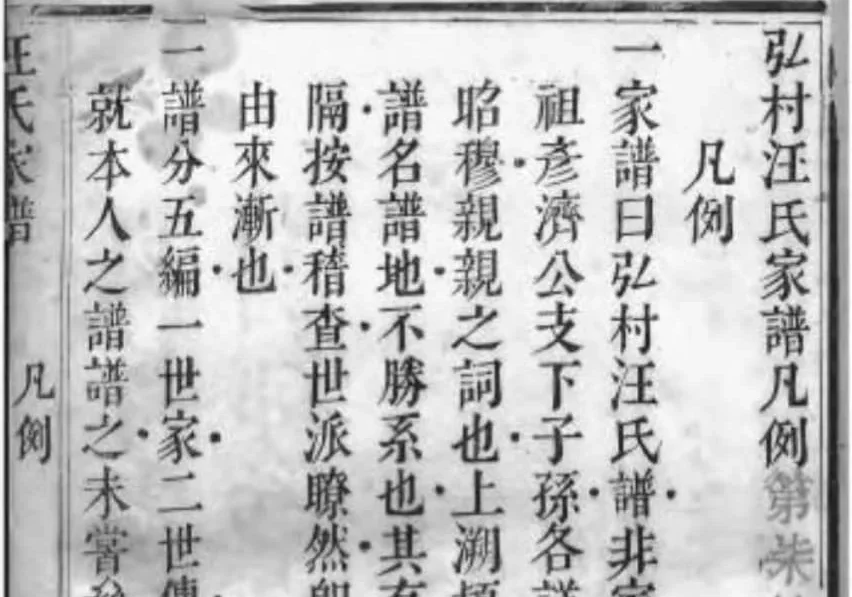 弘村汪氏家譜凡例第
凡例
一家譜曰弘村汪氏譜非家
祖彦濟公支下子孫各詳
昭穆親親之詞也上溯
譜名譜地不勝系也其有
隔按譜稽查世派瞭然
由來漸也
一譜分五編一世家二世傳
就本人之譜譜之未嘗
汪氏家譜 凡例